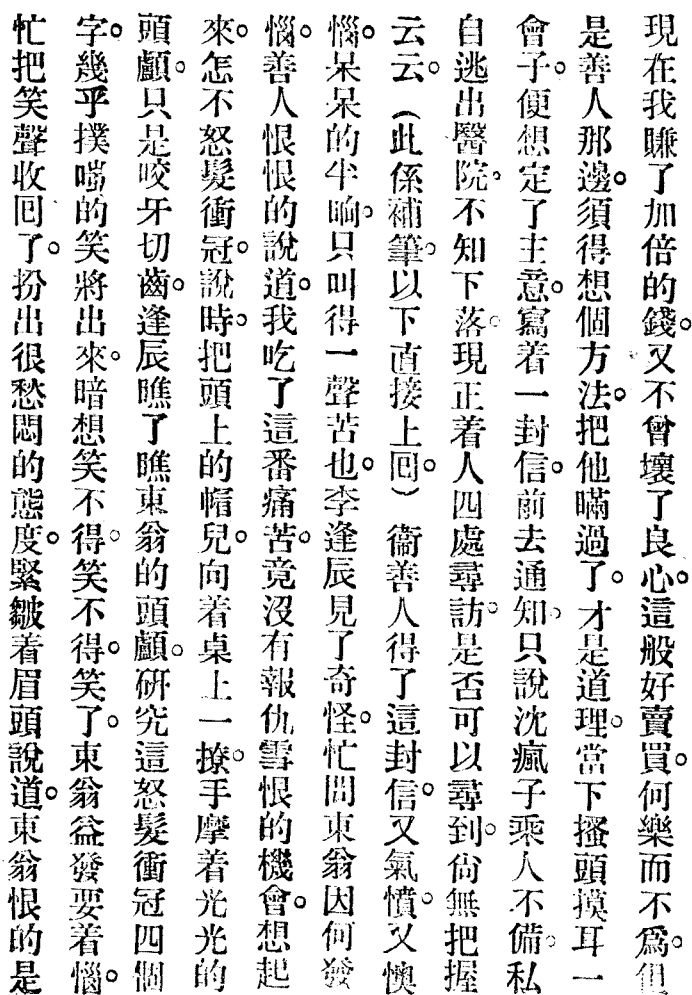 現在我賺了加倍的錢。又不曾壞了良心。這般好賣買。何樂而不爲。但
是善人那邊。須得想個方法。把他瞞過了。才是道理。當下搔頭摸耳一
會子。便想定了主意。寫着一封信。前去通知。只說沈瘋子乘人不備。私
自逃出醫院。不知下落。現正着人四處尋訪。是否可以尋到。尙無把握
云云。（此係補筆。以下直接上回。）衞善人得了這封信。又氣憤。又懊
惱。呆呆的半晌。只叫得一聲苦也。李逢辰見了奇怪。忙問東翁因何發
惱。善人恨恨的說道。我吃了這番痛苦。竟沒有報仇雪恨的機會。想起
來。怎不怒髮衝冠。說時。把頭上的帽兒。向着桌上一撩。手摩着光光的
頭顱。只是咬牙切齒。逢辰瞧了瞧東翁的頭顱。硏究這怒髮衝冠四個
字。幾乎撲嗤的笑將出來。暗想笑不得。笑不得。笑了。東翁益發要着惱。
忙把笑聲收回了。扮出很愁悶的態度。緊皺着眉頭說道。東翁恨的是